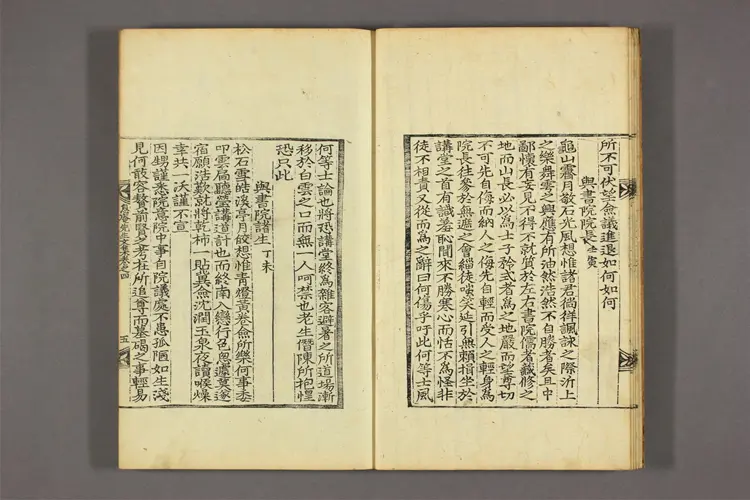 所不可伏望僉議進退如何如何
與書院院長 寅
龜山霽月敬石光風想惟諸君徜徉諷誦之際沂上
之樂舞雩之興應有所油然浩然不自勝者矣且中
鄙懷有妄見不得不就質於左右書院儒者藏修之
地而山長必以為士子矜式者為之地嚴而望尊切
不可先自侮而納人之侮先自輕而受人之輕身為
院長往參於無遮之會緇徒嗤笑延引無賴損坐於
講堂之首有識羞恥聞來不勝寒心而恬不為怪非
徒不相責又從而為之辭曰何傷乎吁此何等士風
何等士論也將恐講堂終為雜客避暑之所道場漸
移於白雲之口而無一人呵禁也老生僭陳所抱惶
恐只此
與書院諸生 丁未
松石雪皓溪亭月皎想惟青燈黃卷僉所樂何事委
叩雲扃聽瑩講道計也而終南入戀行色悤遽莫遂
宿願浩歎就將乾柿一貼冀僉沈澗玉泉夜讀喉燥
幸共一沃謹不宣
因甥謹悉院意院中事自院議處不患孤陋如生淺
見何敢容贅前賢多考在所追尊而墓碣之事輕易
先生文集卷之四
五